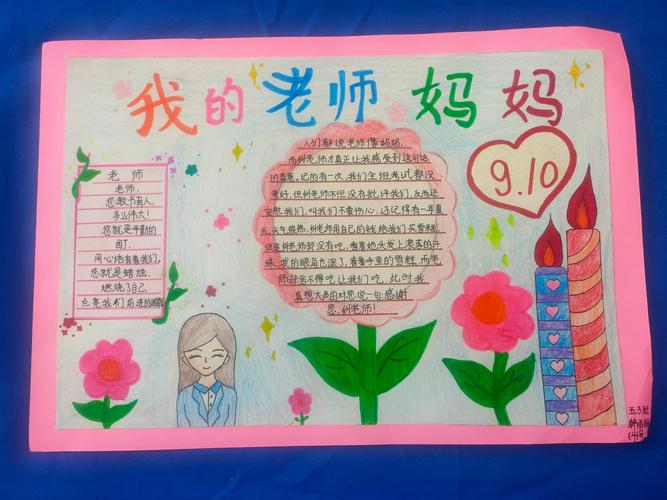 我的老师妈妈
9.10
老师
老师,
您教书育人,
多么伟大!
您就是辛勤的
园丁,
用心培育着我们,
您就是蜡烛,
燃烧了自己,
点亮我们前进的道路
人们都说老师像妈妈,
而刘老师才真正让我感受到这句话
的真意。记的有一次,我们全班考试都没
考好,但刘老师不但没有批评我们,反而还
安慰我们,叫我们不要伤心。还记得有一年夏
天,天气很热,刘老师用自己的钱给我们买雪糕,
但是刘老师却没有吃,看着她头发上滚落的汗
珠,我的眼角湿了,看着手里的雪糕,而老
师却舍不得吃,让我们吃,此时我
真想大声的对您说一句:感谢
您,刘老师!
五.3班